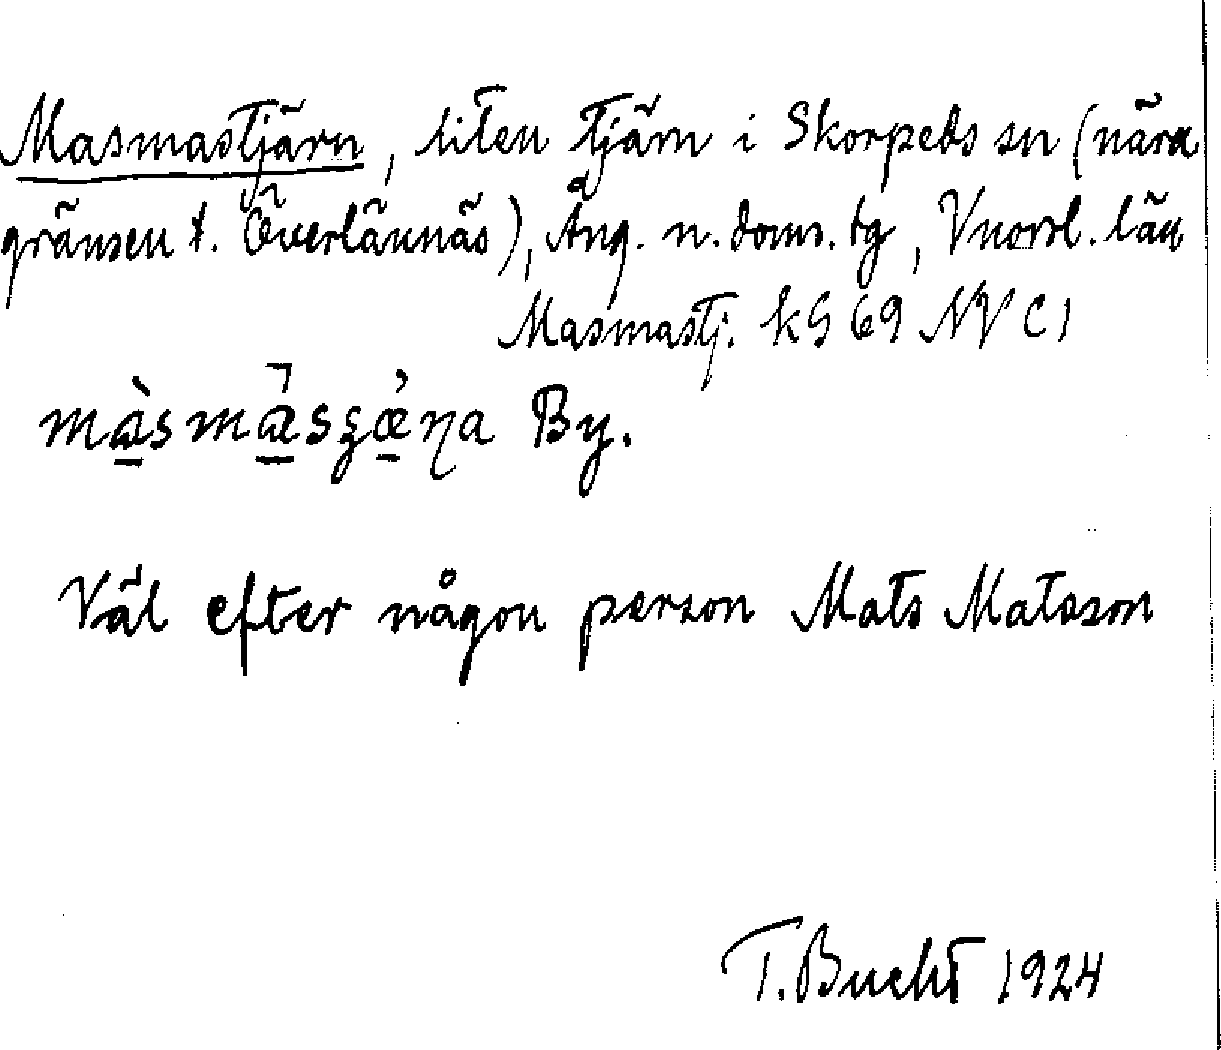 Masmastjärn, liten tjärn i Skorpeds sn (nära
gränsen t. Överlännäs), Ång. n. doms. tg, Vnorrl. län
Masmastj. kG 69 NV C1
By.
Väl efter någon person Mats Matsson
T. Bucht 1924